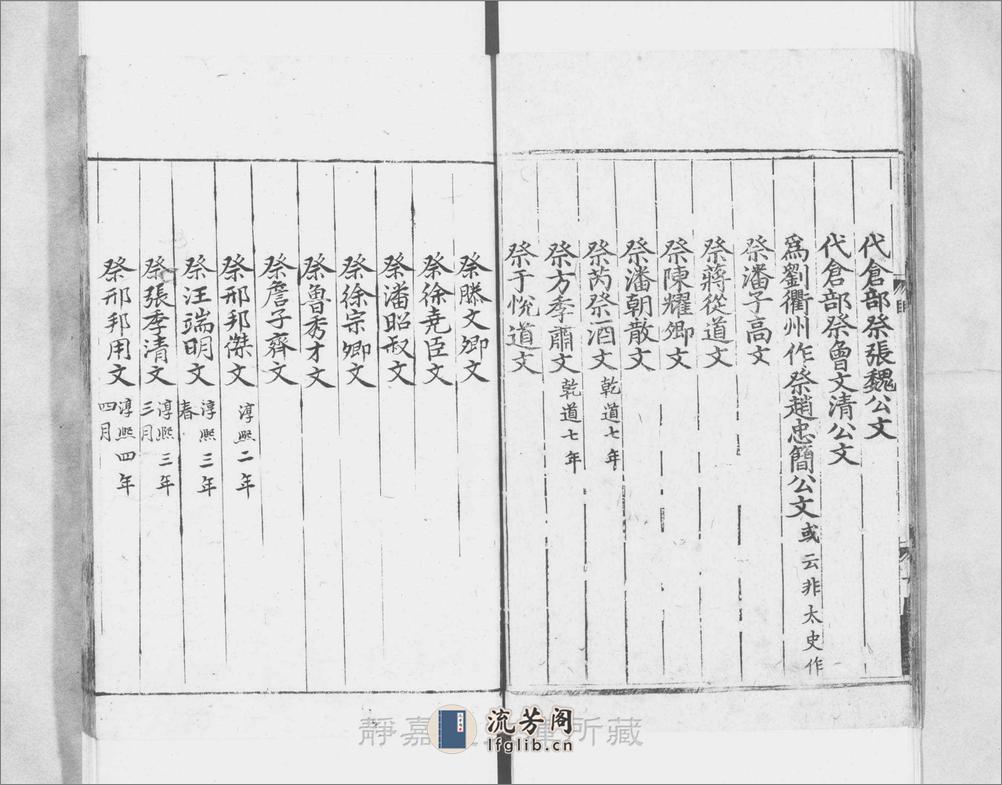 代倉部祭張魏公文
代倉部祭曾文清公文
爲劉衢州作祭趙忠簡公文 或云非太史作
祭潘子高文
祭蔣從道文
祭陳耀卿文
祭潘朝散文
祭芮祭酒文 乾道七年
祭方季肅文 乾道七年
祭于悅道文
祭滕文卿文
祭徐堯臣文
祭潘昭叔文
祭徐宗卿文
祭魯秀才文
祭詹子齊文
祭邢邦傑文 淳熙二年
祭汪端明文 淳熙三年春
祭張季清文 淳熙三年三月
祭邢邦用文 淳熙四年四月
靜嘉 所藏
流芳阁
lfglib.cn